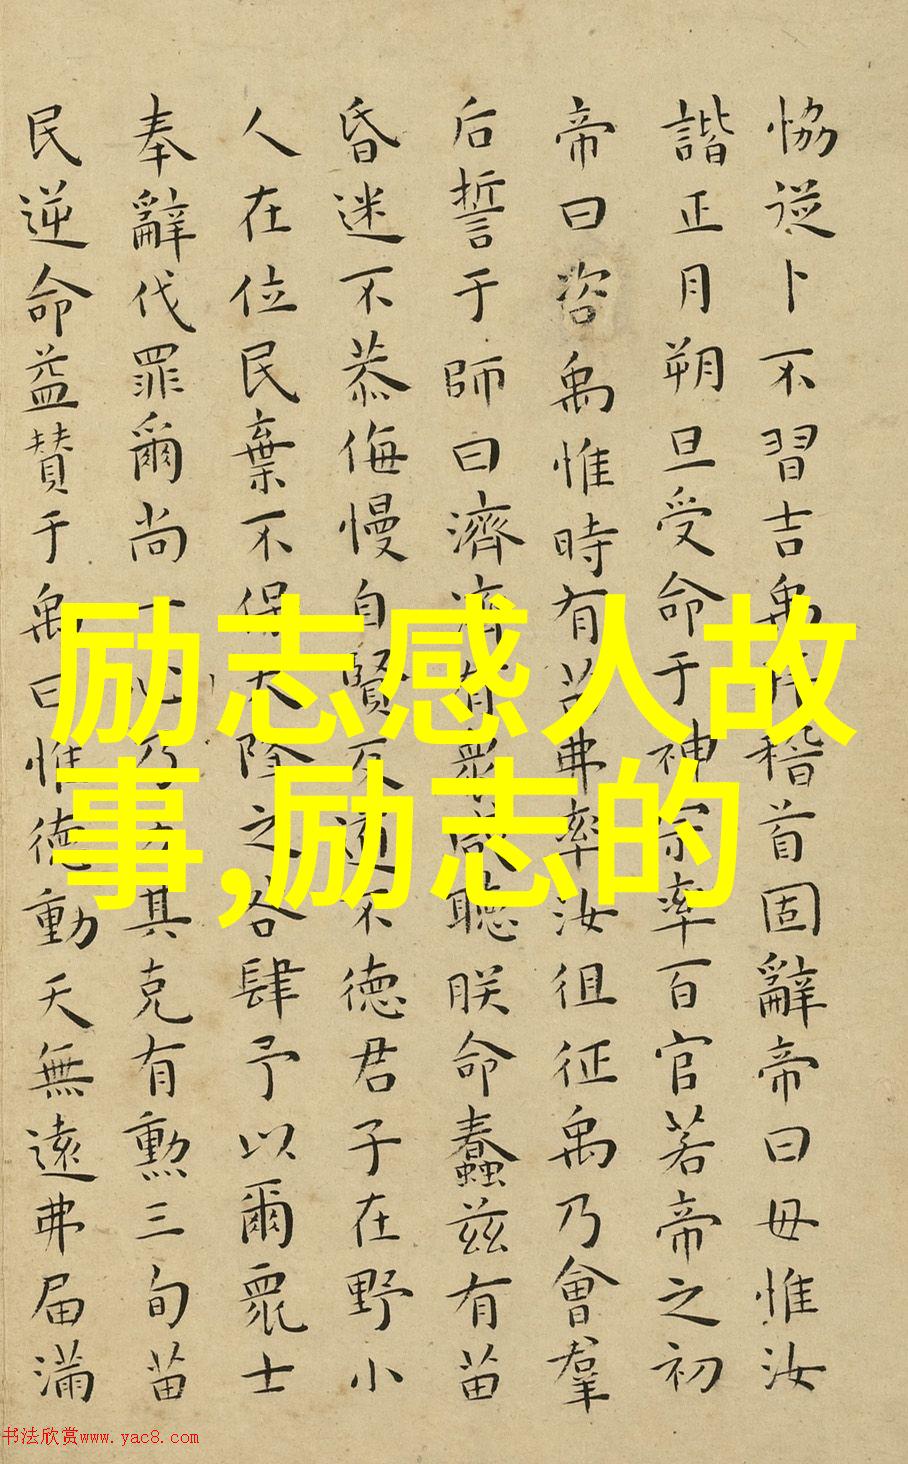 恊從卜不習吉禹拜稽首固辭帝曰毋惟汝
諧正月朔旦受命于神宗率百官若帝之初
帝曰咨禹惟時有苗弗率汝徂征禹乃會羣
后誓于師曰濟濟有衆咸聽朕命蠢兹有苗
昏迷不恭侮慢自賢反道不徳君子在野小
人在位民棄不保天降之咎肆予以爾衆士
奉辭伐罪爾尚一心乃力其克有勲三旬苗
民逆命益賛于禹曰惟徳動天無遠弗届滿
励志感人故
事,励志的
书法欣赏www.yac8.com